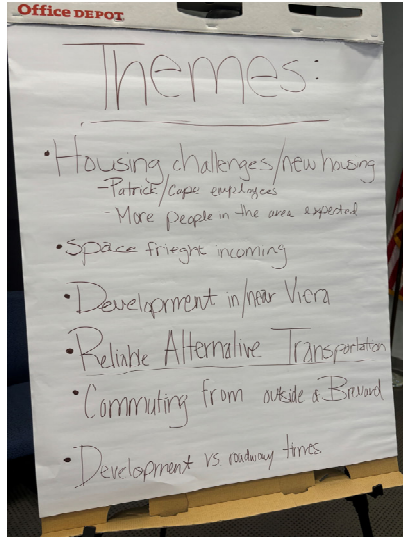 Office DEPOT
Themes:
• Housing challenges/new housing
- Patrick/Cape employees
- More people in the area expected
• Space frieght incoming
• Development in/near Viera
• Reliable Alternative Transportation
• Commuting from outside of Brevard
• Development vs roadway times.